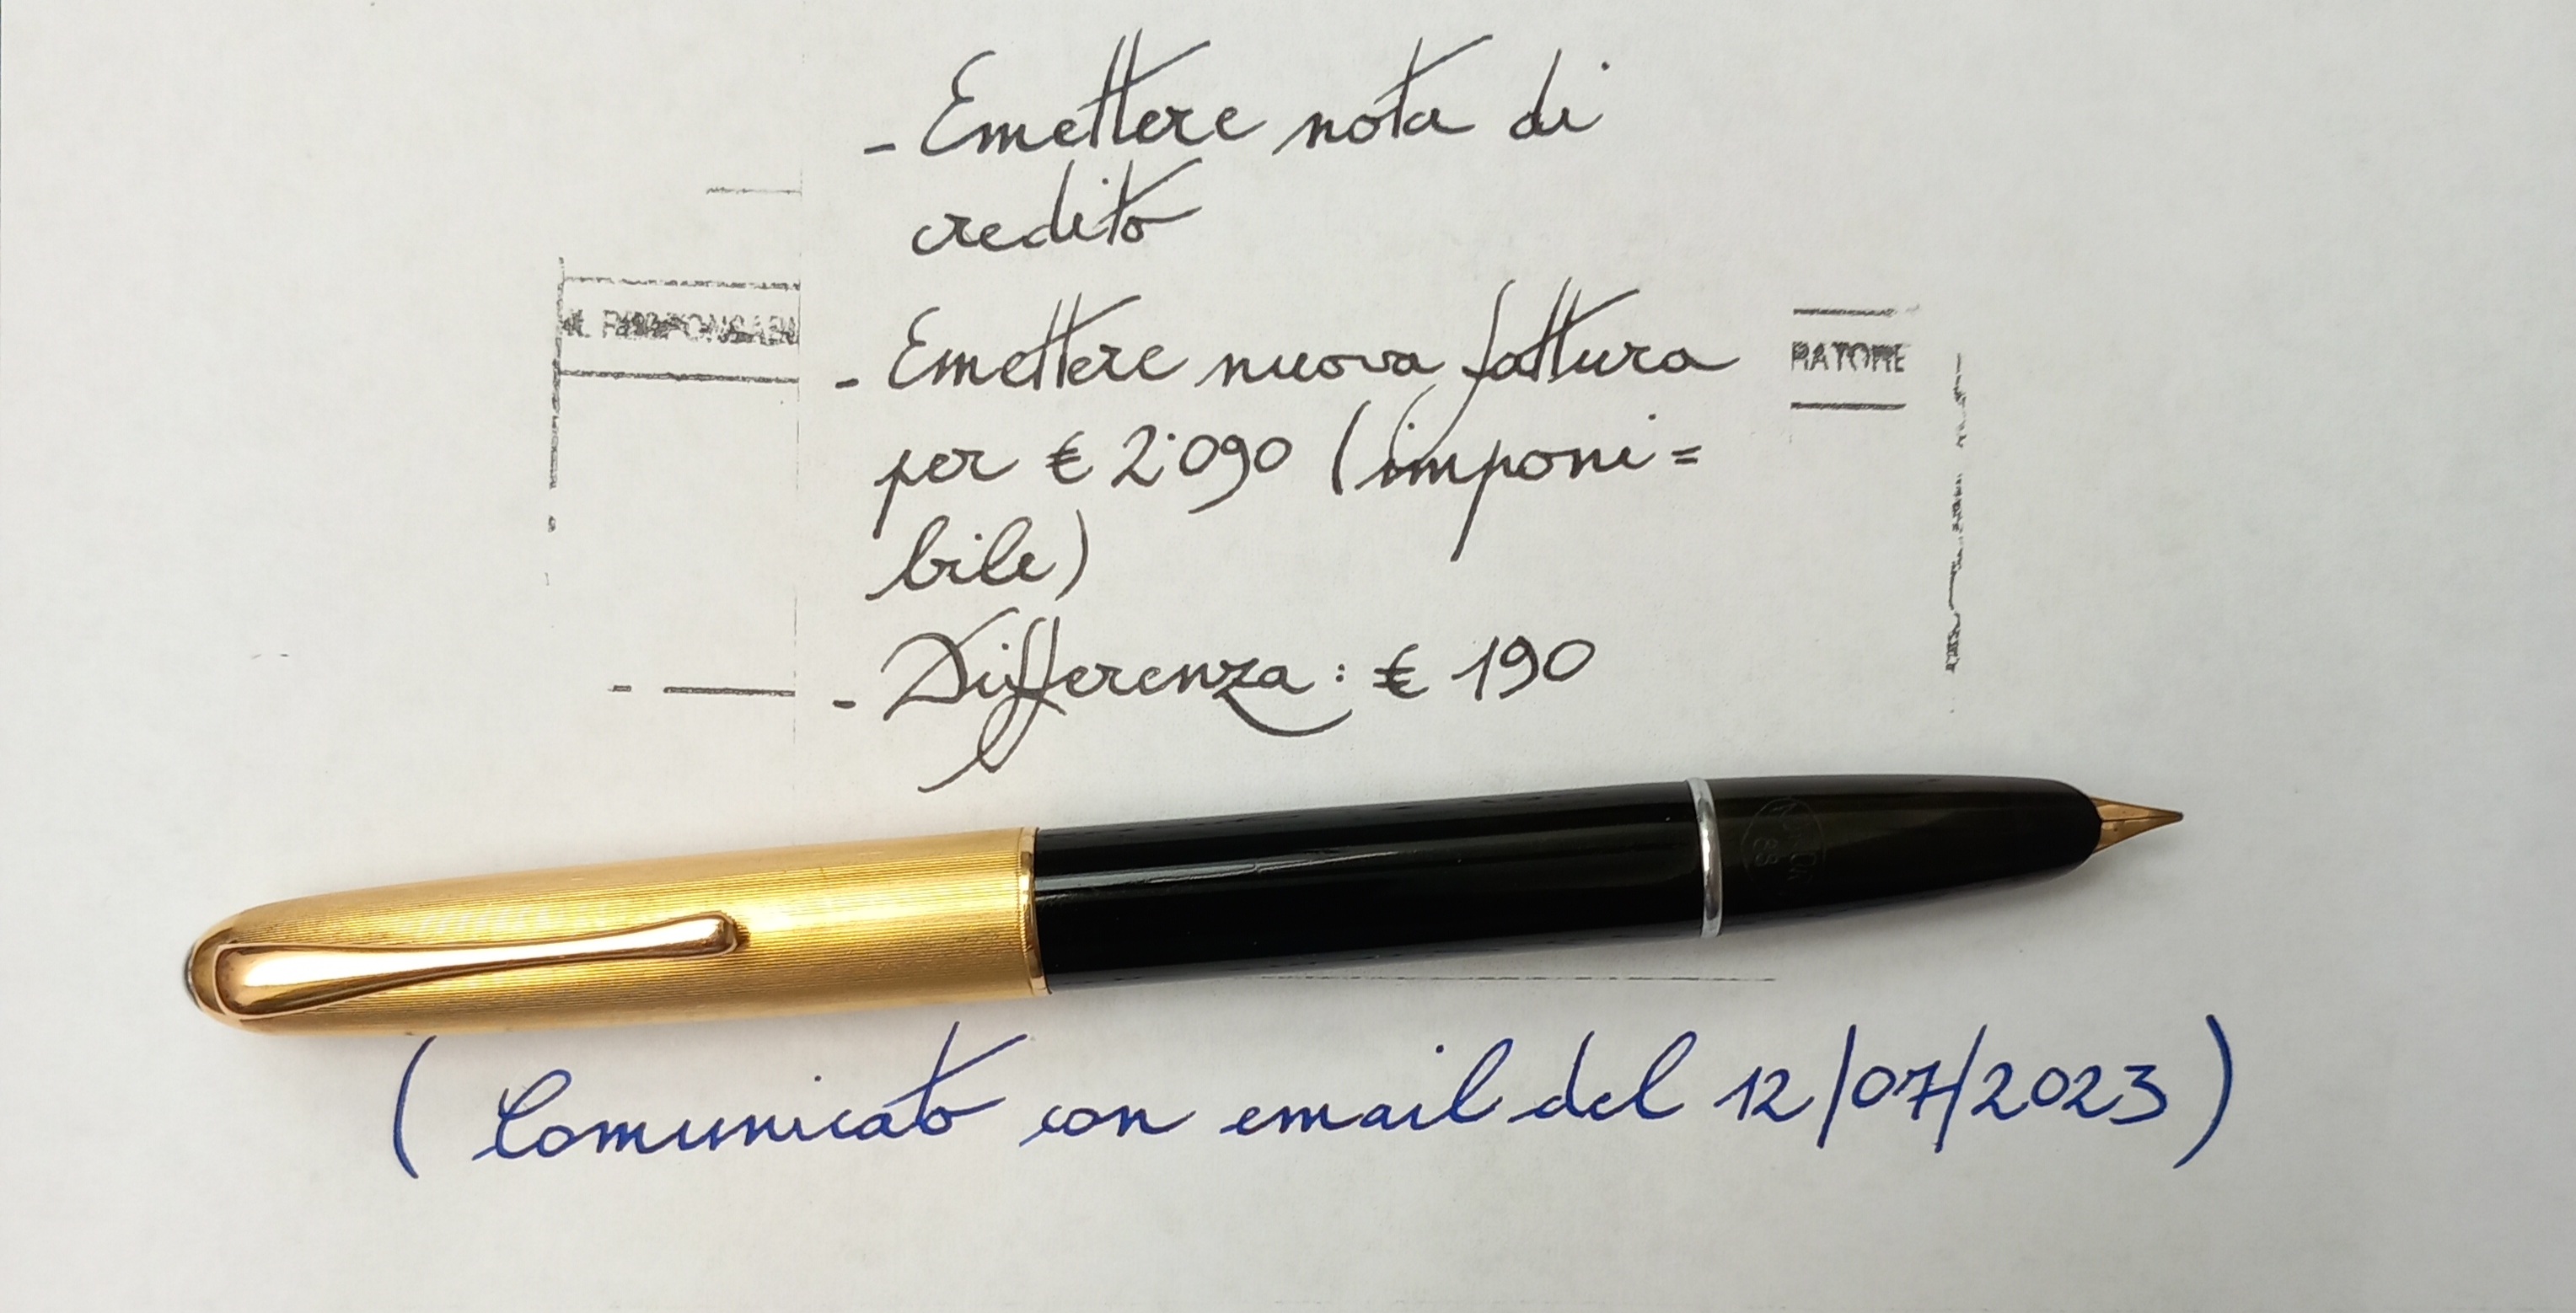 - Emettere nota di
credito
- Emettere nuova fattura
RATORE
per € 2'090 (imponi=
bile)
- Differenza: € 190
(Comunicato con email del 12/07/2023)